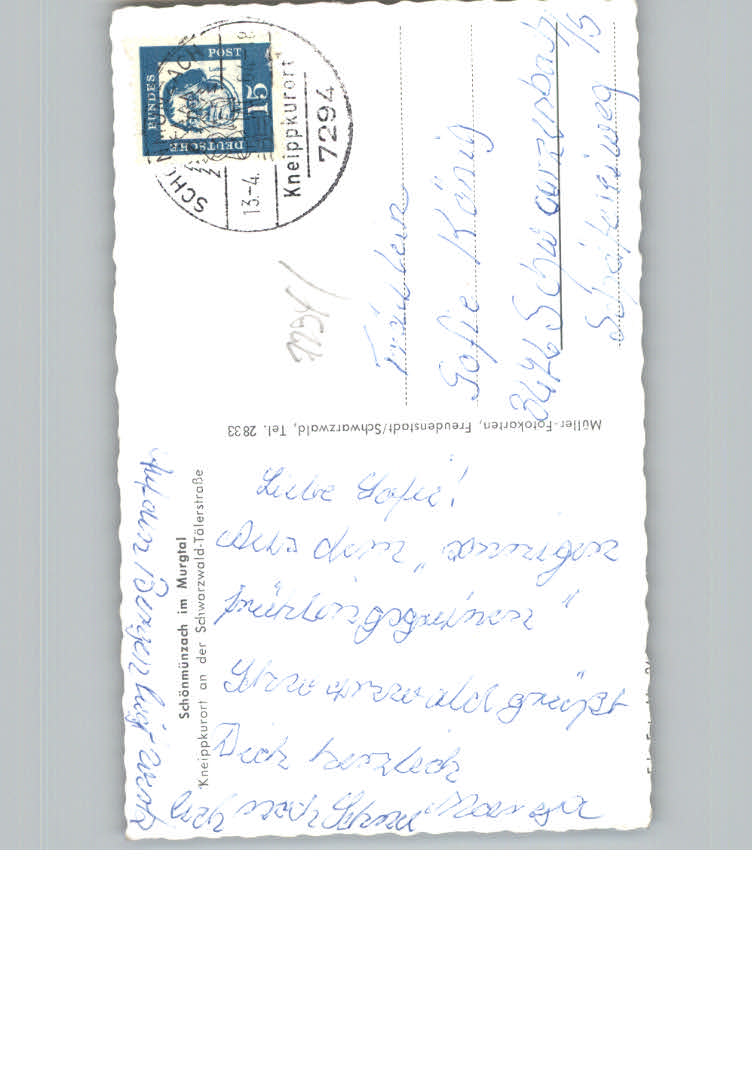 Schönmünzach im Murgtal
Kneippkurort an der Schwarzwald-Tälerstraße
Liebe Sofie!
Aus dem „sonnigen
frühlingsgrünen"
Schwarzwald grüßt
Dich herzlich
Auf den Bergen liegt
noch Schnee
Müller-Fotokarten, Freudenstadt/Schwarzwald, Tel. 2833
DEUTSCHE
BUNDES
POST
15
13.-4.
Kneippkurort
7294
Fräulein
Sofie König
Schwarzenbach
15